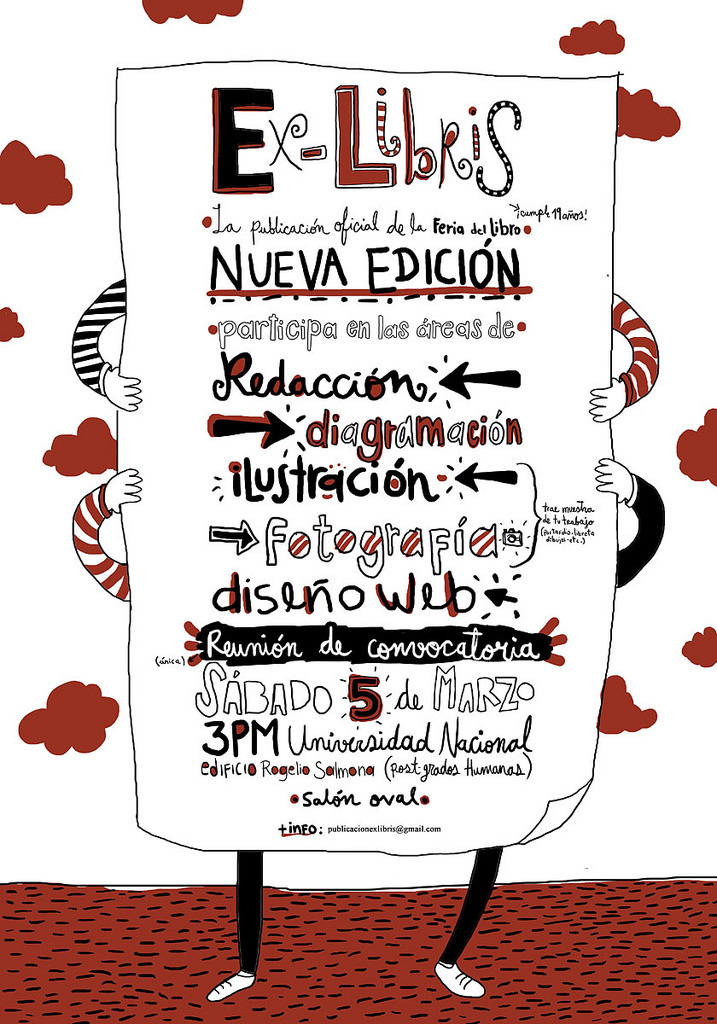 Ex-Libris
¡cumple 19 años!
La publicación oficial de la Feria del libro
NUEVA EDICIÓN
participa en las áreas de
Redacción
diagramación
ilustración
trae muestra
de tu trabajo
(portafolio, libreta
dibujos-etc.)
fotografía
diseño web
Reunión de convocatoria
(única)
SÁBADO 5 de MARZO
3PM Universidad Nacional
EDIFICIO Rogelio Salmona (postgrados Humanas)
salón oval
+INFO: publicacionexlibris@gmail.com